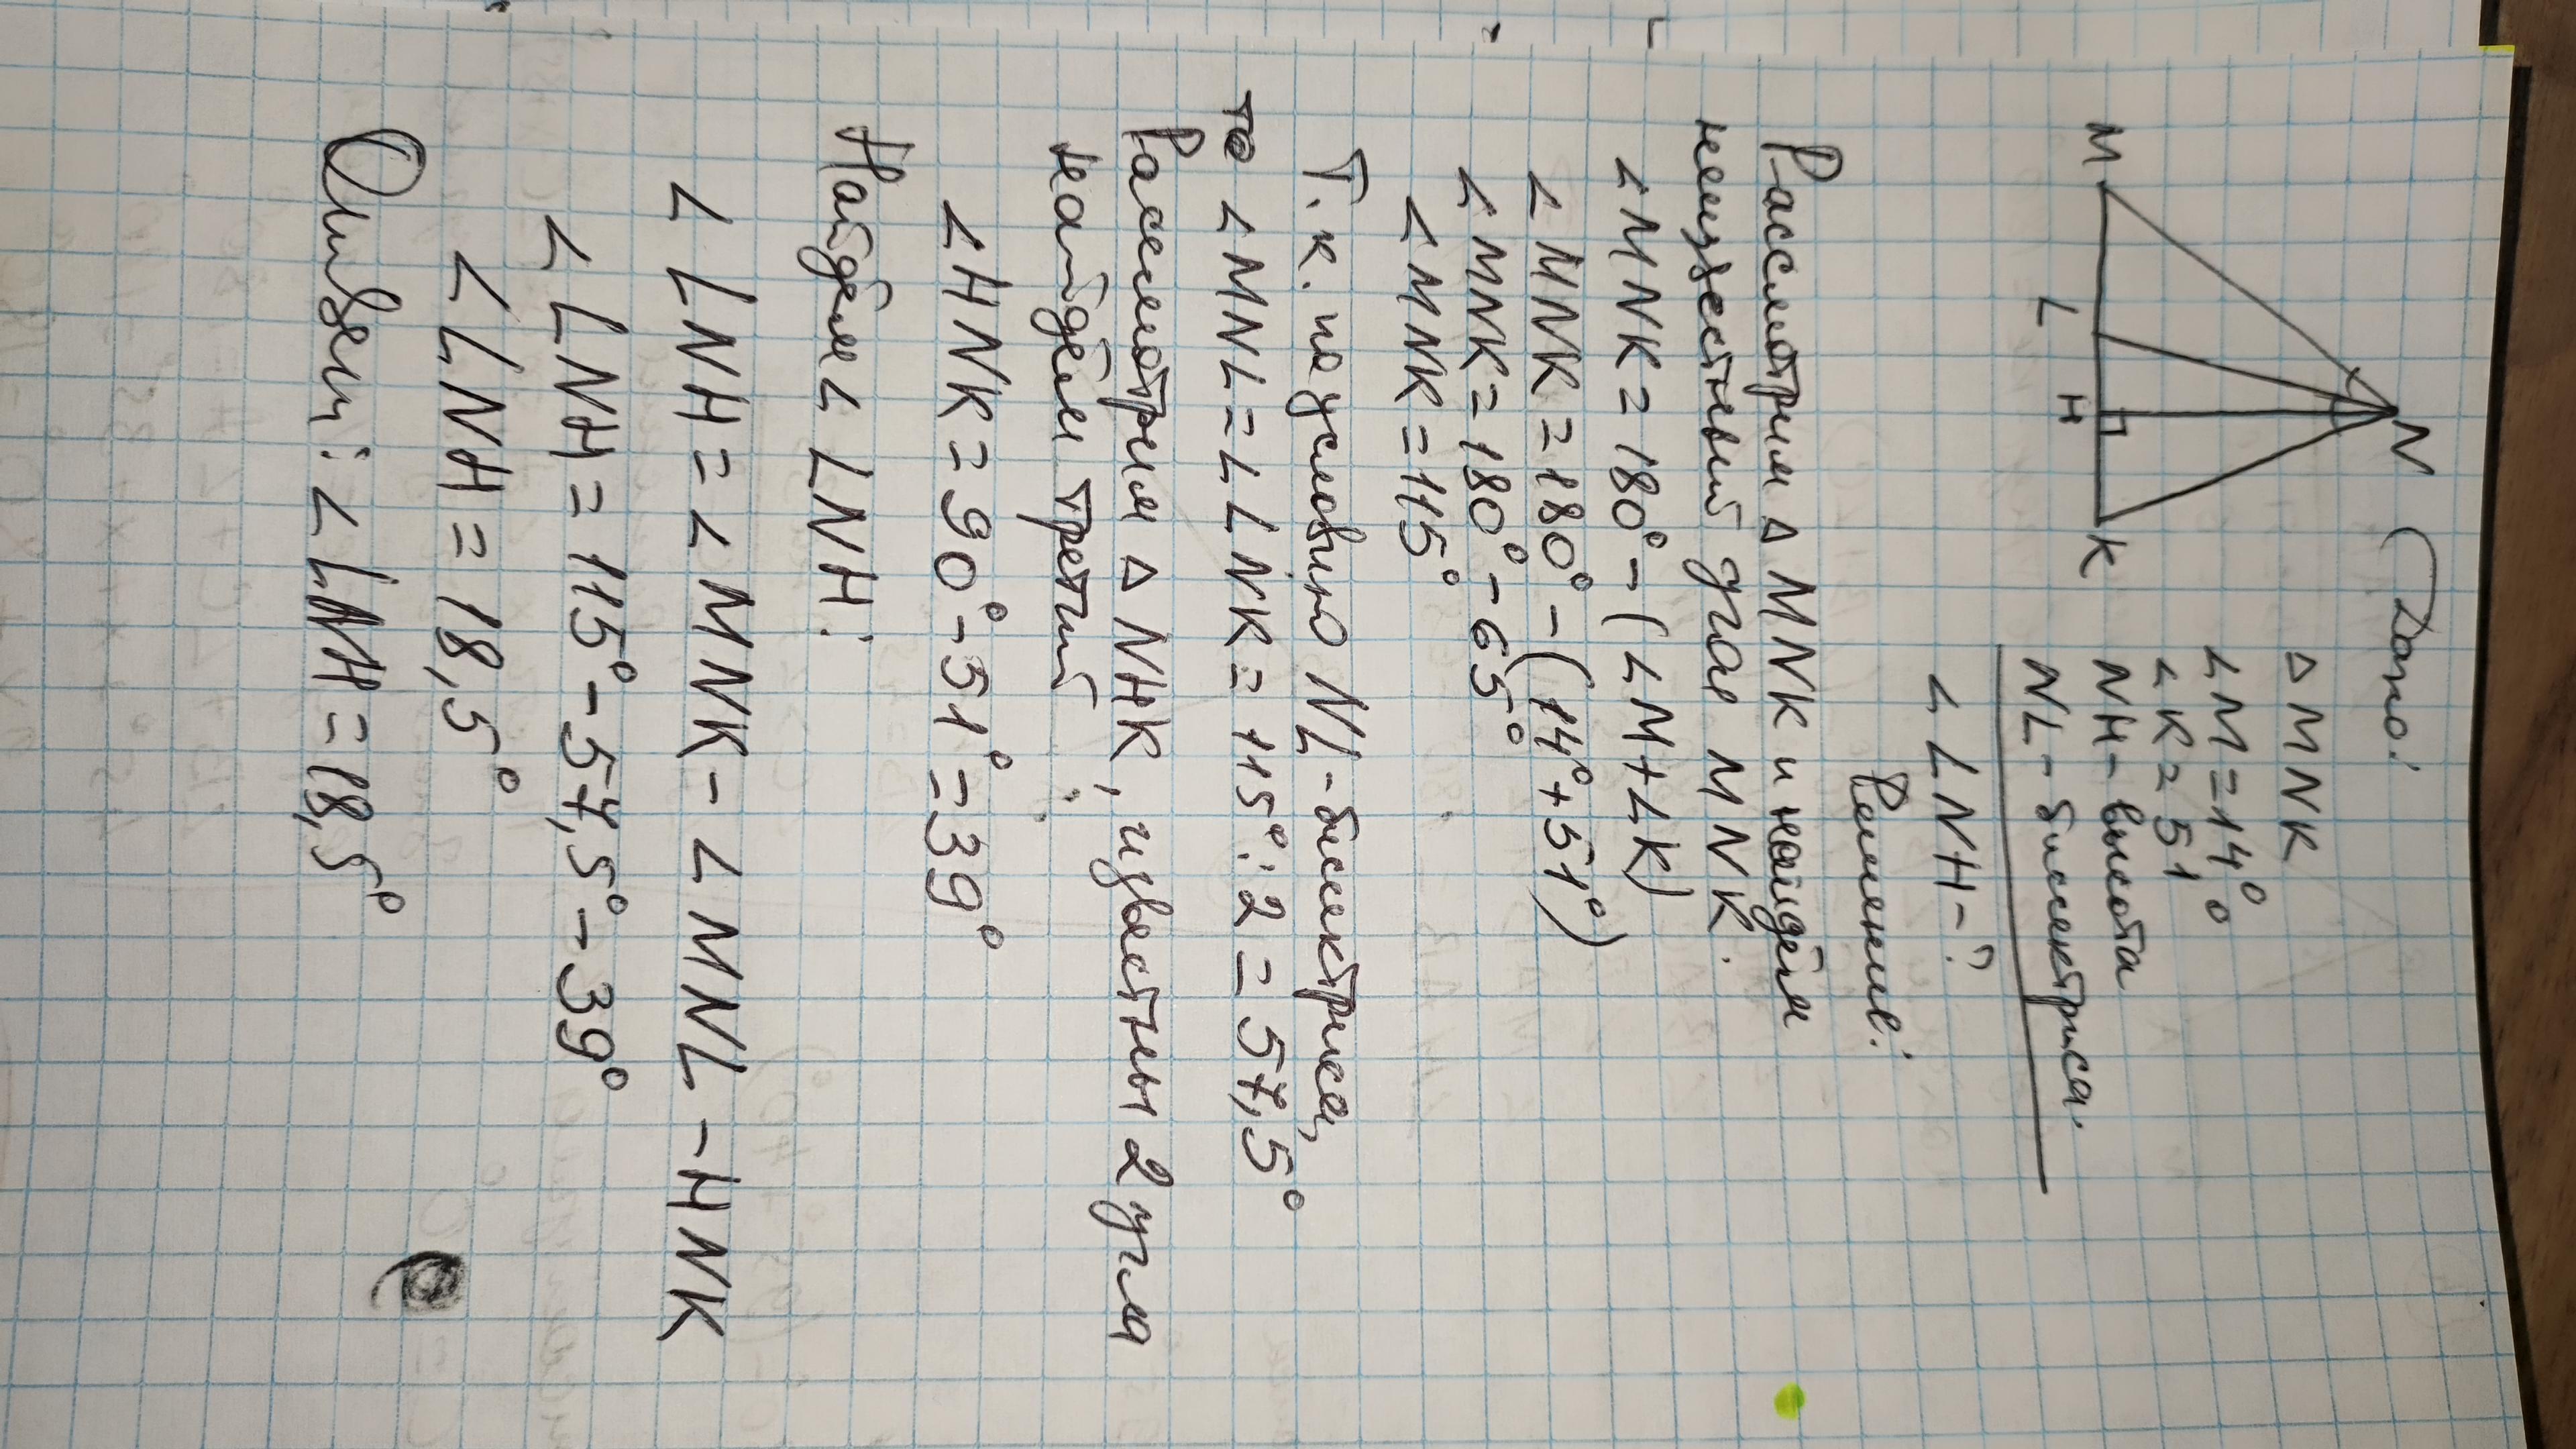 N
M
L
H
K
Дано:
△ MNK
∠M = 14°
∠K = 51°
NH - высота
NL - биссектриса.
∠LNH - ?
Решение:
Рассмотрим △ MNK и найдём
неизвестный угол MNK.
∠MNK = 180° - (∠M + ∠K)
∠MNK = 180° - (14° + 51°)
∠MNK = 180° - 65°
∠MNK = 115°
Т.к. по условию NL - биссектриса,
то ∠MNL = ∠LNK = 115° : 2 = 57,5°
Рассмотрим △ NHK, известны 2 угла
найдём третий
∠HNK = 90° - 51° = 39°
Найдём ∠LNH:
∠LNH = ∠MNK - ∠MNL - HNK
∠LNH = 115° - 57,5° - 39°
∠LNH = 18,5°
Ответ: ∠LNH = 18,5°